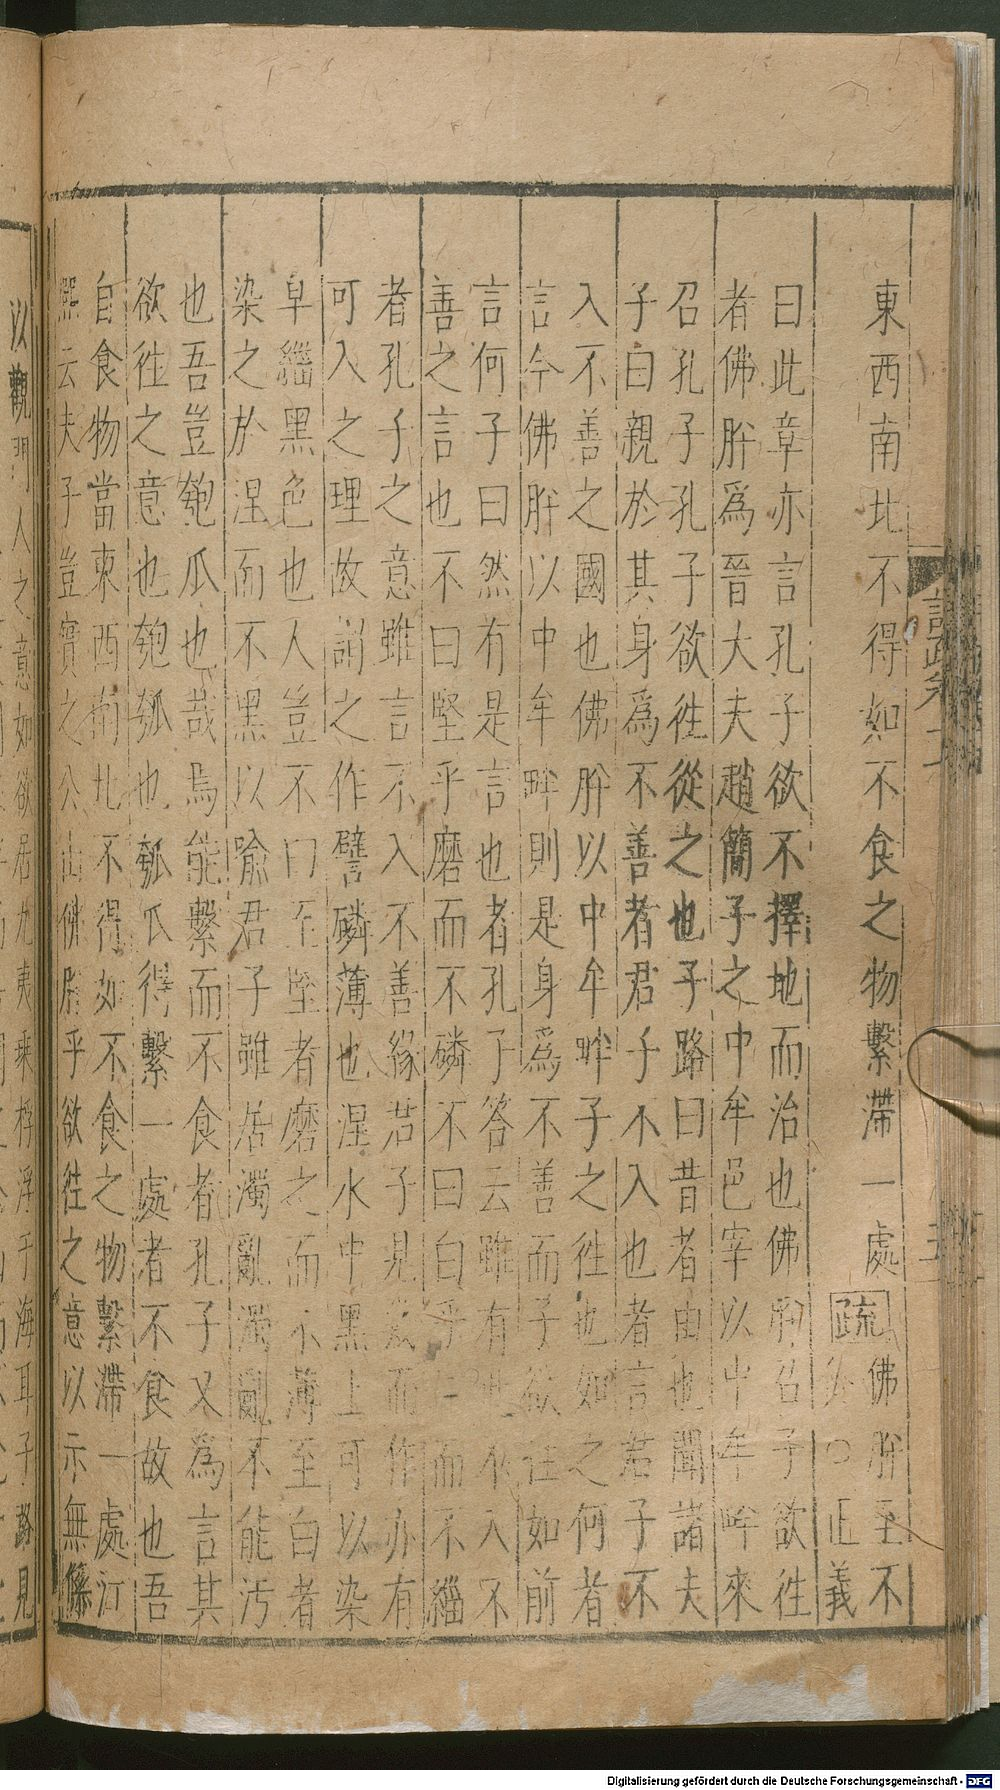 東西南北不得如不食之物繫滯一處 疏 佛肸至不
食〇正義
曰此章亦言孔子欲不擇地而治也佛肸召子欲徃
者佛肸為晉大夫趙簡子之中牟邑宰以中牟畔來
召孔子孔子欲徃從之也子路曰昔者由也聞諸夫
子曰親於其身為不善者君子不入也者言君子不
入不善之國也佛肸以中牟畔子之徃也如之何者
言今佛肸以中牟畔則是身為不善而子欲徃如前
言何子曰然有是言也者孔子答云雖有此不入不
善之言也不曰堅乎磨而不磷不曰白乎涅而不緇
者孔子之意雖言不入不善緣君子見幾而作亦有
可入之理故謂之作譬磷薄也涅水中黑土可以染
皁緇黑色也人豈不曰至堅者磨之而不薄至白者
染之於涅而不黑以喻君子雖居濁亂濁亂不能汚
也吾豈匏瓜也哉焉能繫而不食者孔子又為言其
欲徃之意也匏瓠也瓠瓜得繫一處者不食故也吾
自食物當東西南北不得如不食之物繫滯一處江
熙云夫子豈實之公山佛肸乎欲徃之意以示無係
以觀門人之意如欲居九夷乘桴浮于海耳子路見
Digitalisierung gefördert durch die Deutsche Forschungsgemeinschaft - DFG